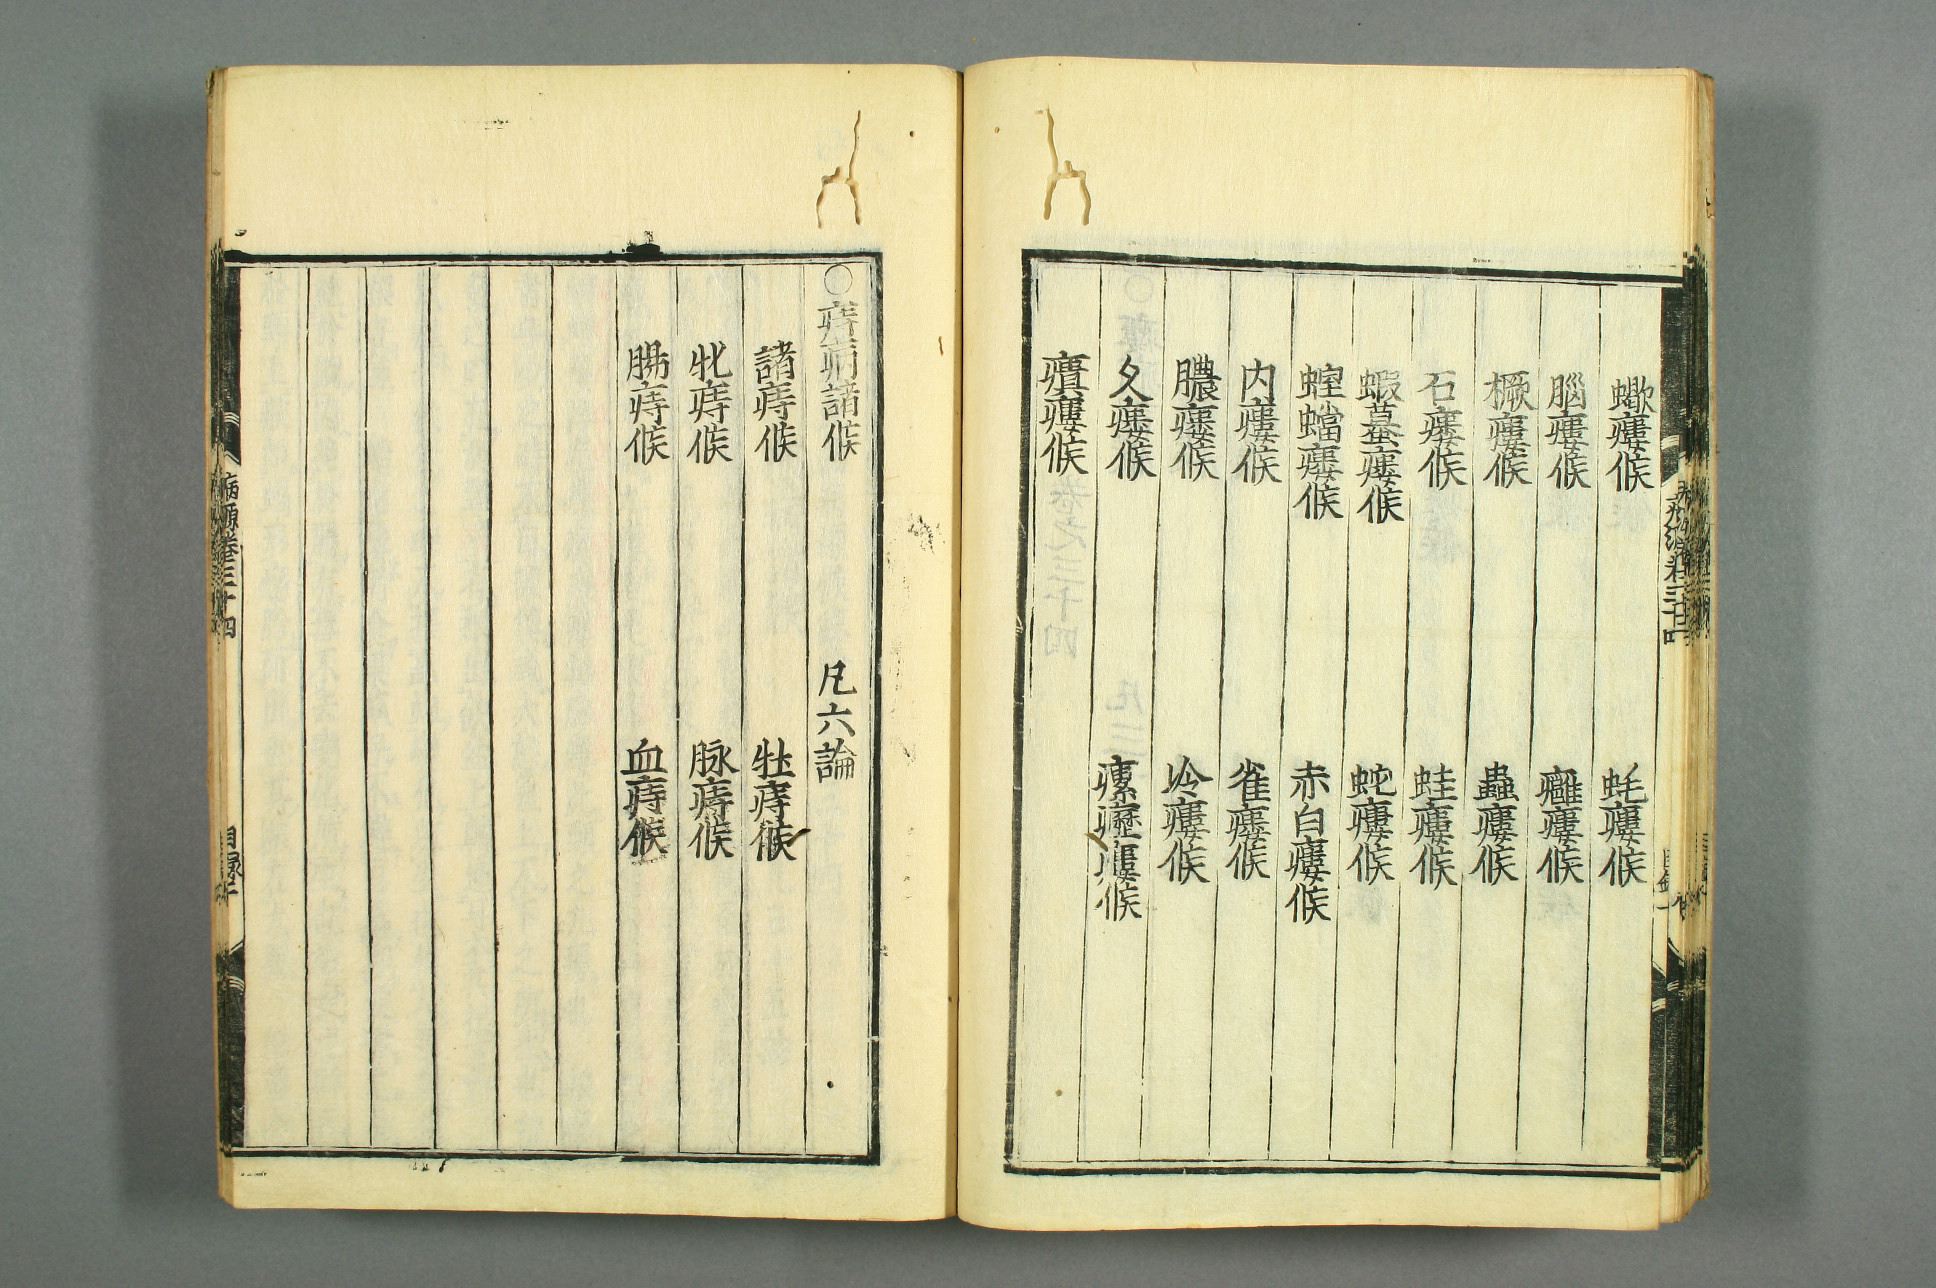 蠍瘻候 蚝瘻候
腦瘻候 癰瘻候
橛瘻候 蟲瘻候
石瘻候 蛙瘻候
蝦蟇瘻候 蛇瘻候
蝗蟷瘻候 赤白瘻候
内瘻候 雀瘻候
膿瘻候 冷瘻候
久瘻候 瘰癧瘻候
㿈瘻候
○痔病諸候 凡六論
諸痔候 牡痔候
牝痔候 脉痔候
腸痔候 血痔候
病源卷三十四 目録二